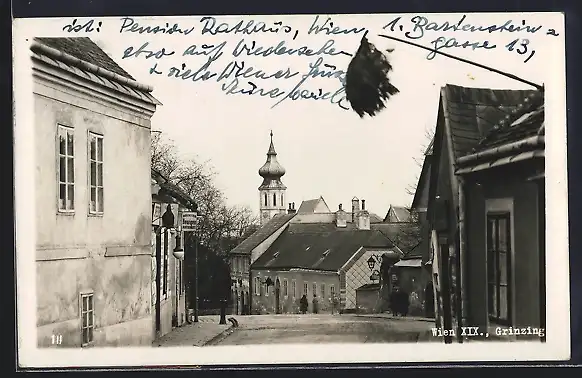 ist: Pension Rathaus, Wien, 1. Bartenstein=
gasse 13,
also auf Wiedersehen
& viele Wiener Grüsse
Wien XIX., Grinzing